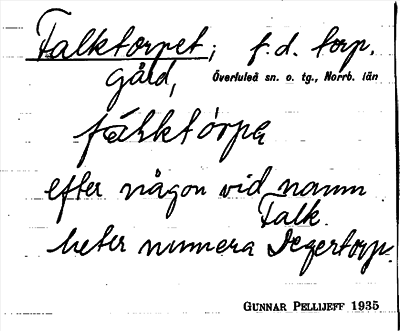 Falktorpet; f.d. torp,
gård, Överluleå sn. o. tg., Norrb. län
efter någon vid namn
Falk.
heter numera Degertorp.
GUNNAR PELLIJEFF 1935